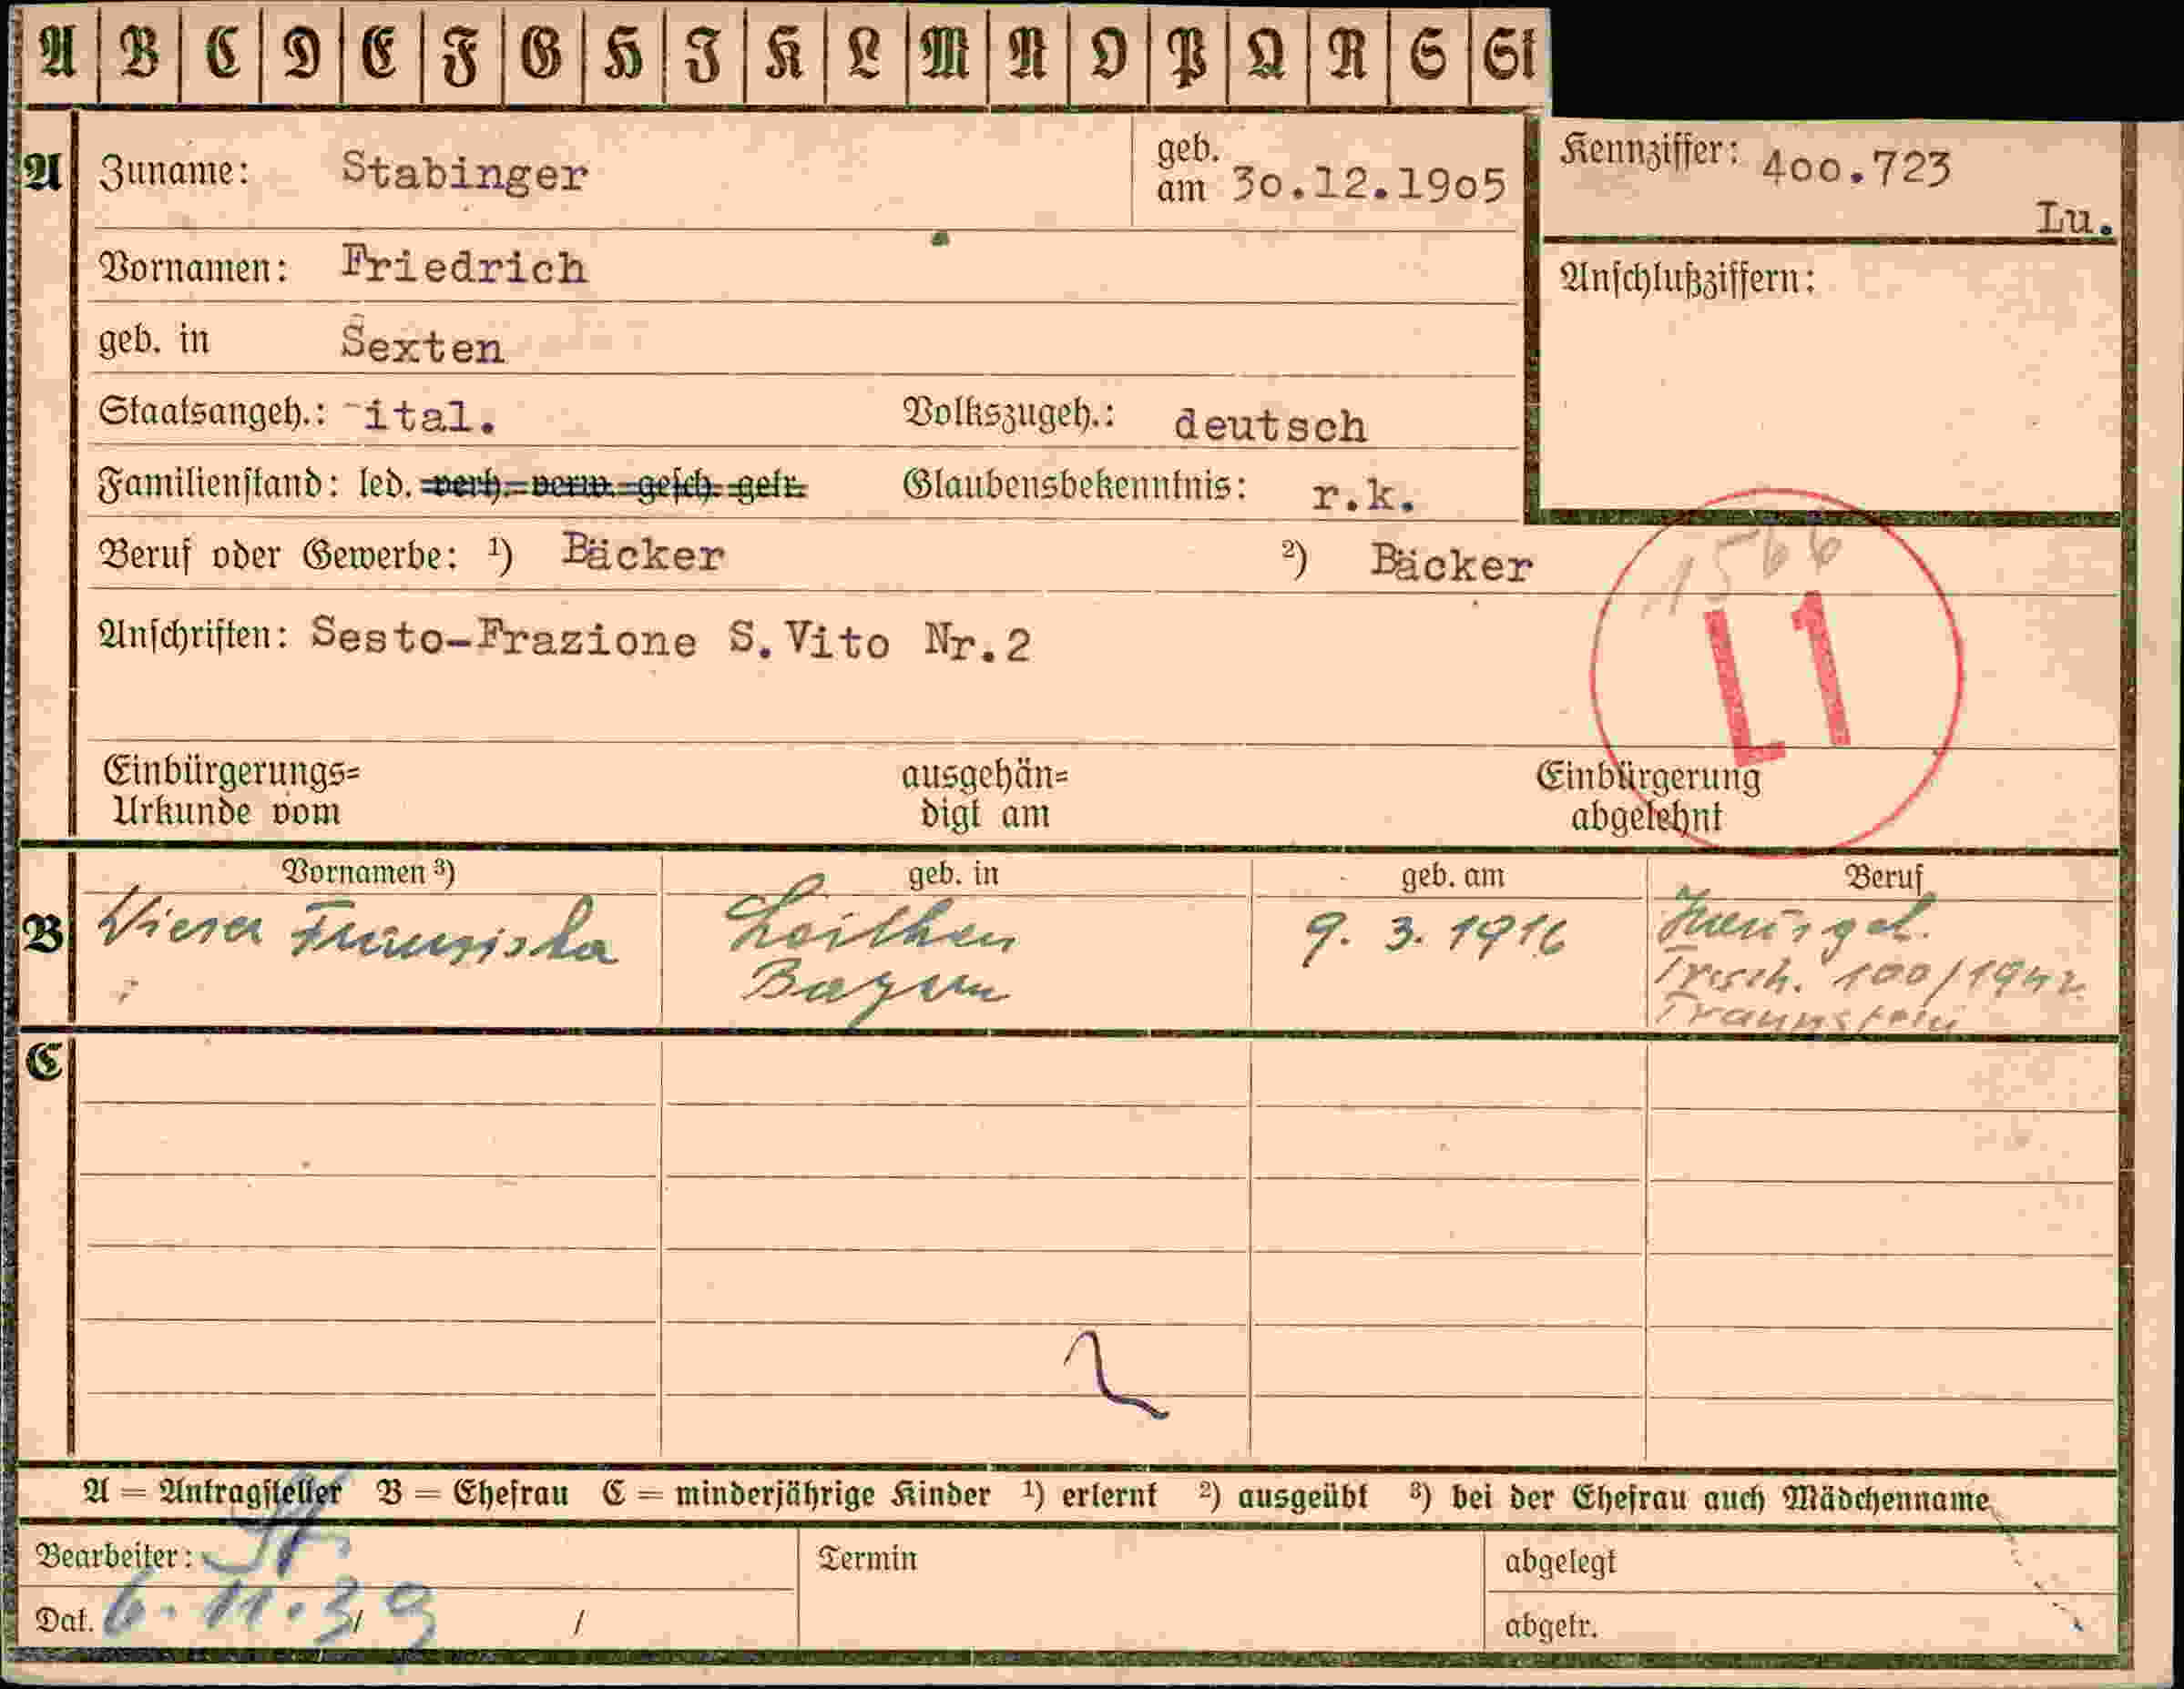 A B C D E F G H I K L M N O P Q R S St
A Zuname: Stabinger geb. am 30.12.1905
Kennziffer: 400.723
Lu.
Vornamen: Friedrich
Anschlußziffern:
geb. in Sexten
Staatsangeh.: ital. Volkszugeh.: deutsch
Familienstand: led. verh. verw. gesch. getr. Glaubensbekenntnis: r.k.
Beruf oder Gewerbe: ¹) Bäcker ²) Bäcker
1566
L1
Anschriften: Sesto-Frazione S.Vito Nr.2
Einbürgerungs= ausgehän= Einbürgerung
Urkunde vom digt am abgelehnt
Vornamen ³) geb. in geb. am Beruf
B Wieser Franziska 9. 3. 1916
Bayern 100/1942
Traunstein
C
A = Antragsteller B = Ehefrau C = minderjährige Kinder ¹) erlernt ²) ausgeübt ³) bei der Ehefrau auch Mädchenname
Bearbeiter: Termin abgelegt
Dat. 6.11.39 / / abgetr.